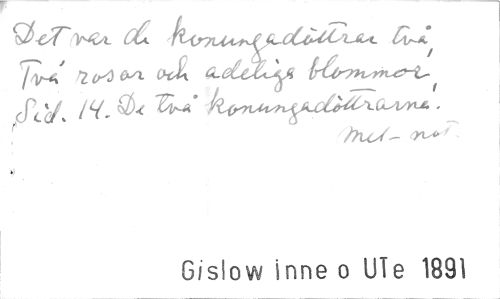 Det var de konungadöttrar två,
Två rosor och adeliga blommor,
Sid. 14. De två konungadöttrarna.
Mel-not.
Gislow inne o UTe 1891